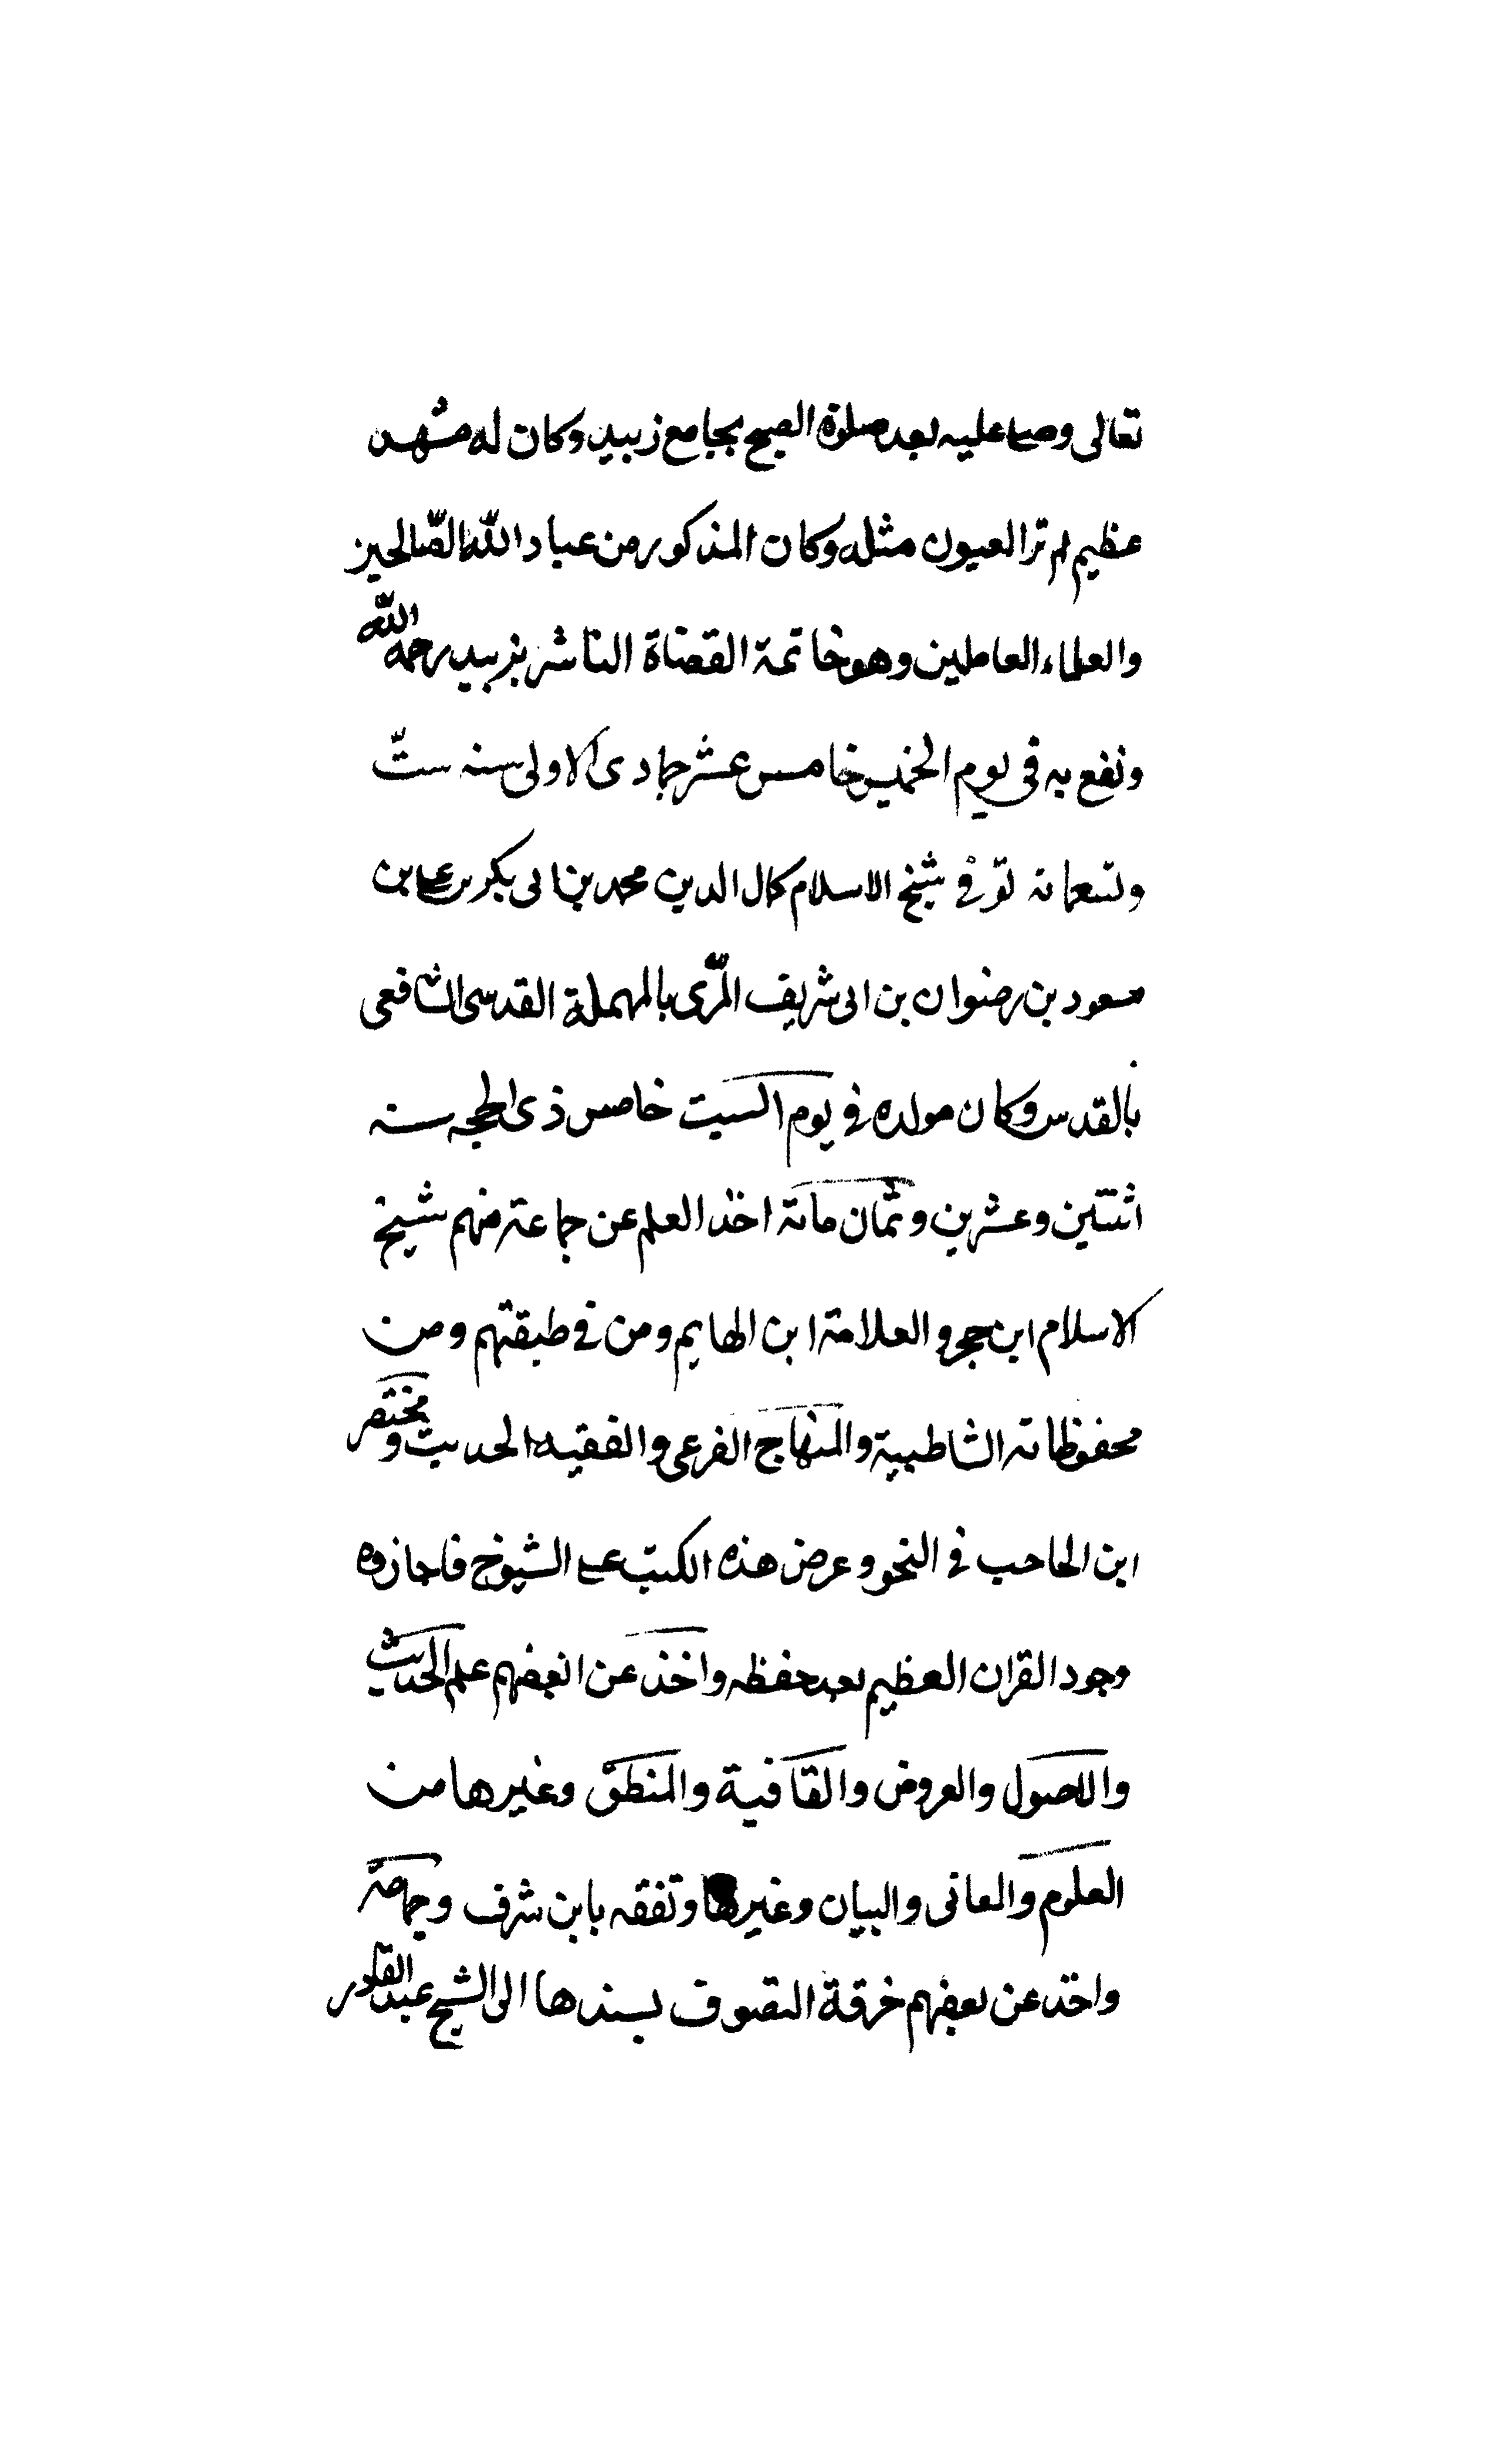 تعالى وصلى عليه بعد صلوة الصبح بجامع زبيد وكان له مشهد
عظيم لم تر العيون مثله وكان المذكور من عباد الله الصّالحين
والعلماء العاملين وهو خاتمة القضاة الناشر بزبيد رحمه الله
ونفع به في يوم الخميس خامس عشر جمادى الاولى سنه ستّ
وتسعمائه توفى شيخ الاسلام كمال الدين محمد بن ابى بكر بن على بن
مسعود بن رضوان بن ابى شريف المرّى بالمهملة القدسى الشافعى
بالقدس وكان مولده في يوم السبت خامس ذى الحجه سنه
اثنتين وعشرين وثمان مائة اخذ العلم عن جماعة منهم شيخ
الاسلام ابن حجر والعلامة ابن الهايم ومن في طبقتهم ومن
محفوظاته الشاطبية والمنهاج الفرعى والفقيه الحديث ومختصر
ابن الحاحب في النحو وعرض هذه الكتب على الشيوخ فاجازوه
وجود القران العظيم بعد حفظه واخذ عن ابعضهم علم الحديث
والاصول والعروض والقافية والمنطق وغيرها من
العلوم والمعانى والبيان وغيرها وتفقه بابن شرف وجماعة
واخذ عن بعضهم خرقة التصوف بسندها الى الشيخ عبد القادر